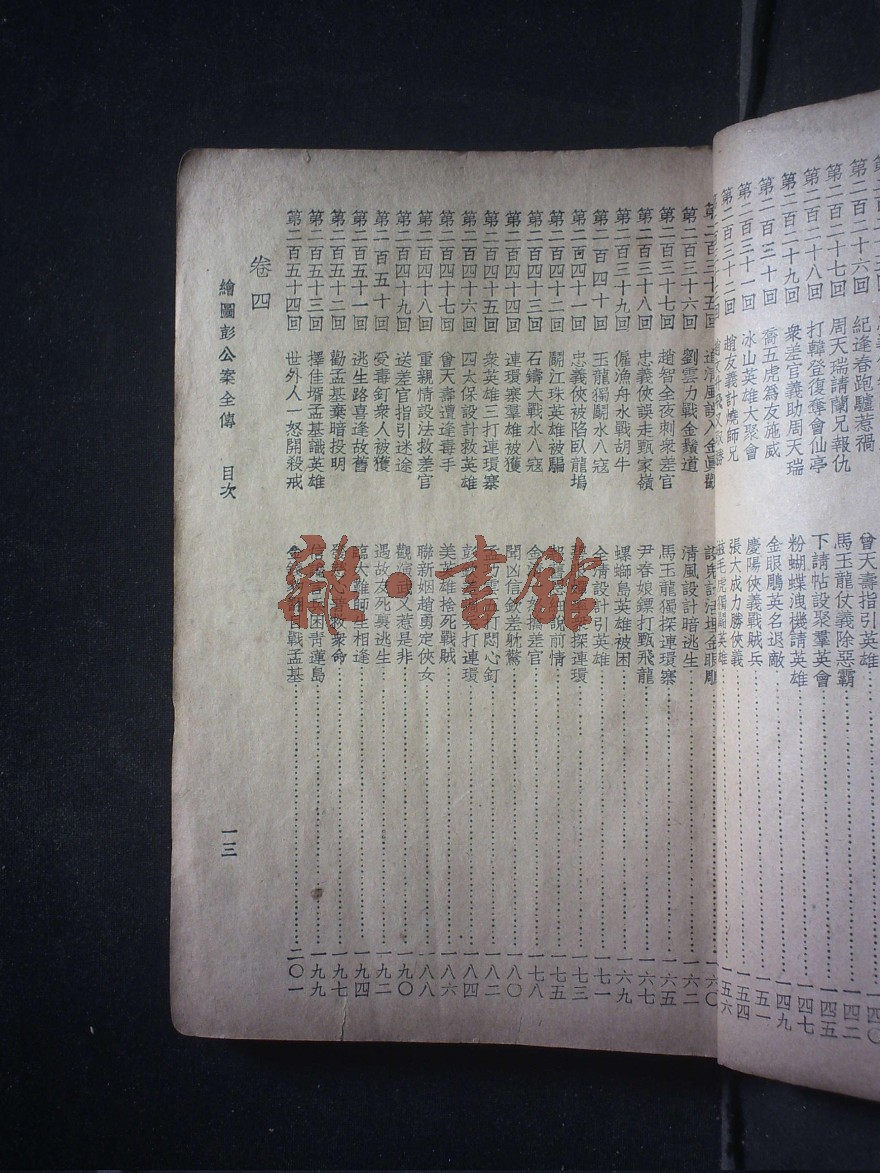 第二百二十六回 紀逢春跑驢惹禍 曾天壽指引英雄 一四〇
第二百二十七回 周天瑞請蘭兄報仇 馬玉龍仗義除惡霸 一四二
第二百二十八回 打韓登復奪會仙亭 下請帖設聚羣英會 一四五
第二百二十九回 衆差官義助周天瑞 粉蝴蝶洩機請英雄 一四七
第二百三十回 喬五虎為友施威 金眼鵰英名退敵 一四九
第二百三十一回 冰山英雄大聚會 慶陽俠義戰賊兵 一五一
第二百三十二回 趙友義計燒師兄 張大成力勝俠義 一五四
一五六
第二百三十五回 一六〇
第二百三十六回 劉雲力戰金鬚道 清風設計暗逃生 一六二
第二百三十七回 趙智全夜刺衆差官 馬玉龍獨探連環寨 一六五
第二百三十八回 忠義俠誤走甄家嶺 尹春娘鏢打甄飛龍 一六七
第二百三十九回 傷漁舟水戰胡牛 螺螄島英雄被困 一六九
第二百四十回 玉龍獨鬭水八寇 全清設計引英雄 一七一
第二百四十一回 忠義俠被陷臥龍塢 探連環 一七三
第二百四十二回 鬭江珠英雄被騙 說前情 一七五
第二百四十三回 石鑄大戰水八寇 差官 一七八
第二百四十四回 連環寨羣雄被獲 聞凶信欽差躭驚 一八〇
第二百四十五回 衆英雄三打連環寨 打悶心釘 一八二
第二百四十六回 四太保設計救英雄 打連環 一八四
第二百四十七回 曾天壽遭逢毒手 美英雄捨死戰賊 一八六
第二百四十八回 重親情設法救差官 聯新姻趙勇定俠女 一八八
第二百四十九回 送差官指引迷途 觀 武又惹是非 一九〇
第二百五十回 愛毒釘衆人被獲 遇故友死裏逃生 一九二
第二百五十一回 逃生路喜逢故舊 臨大難師生相逢 一九四
第二百五十二回 勸孟基棄暗投明 救衆命 一九七
第二百五十三回 擇佳壻孟基識英雄 困青蓮島 一九九
第二百五十四回 世外人一怒開殺戒 戰孟基 二〇一
卷四
繪圖彭公案全傳 目次 一三
雜·書館